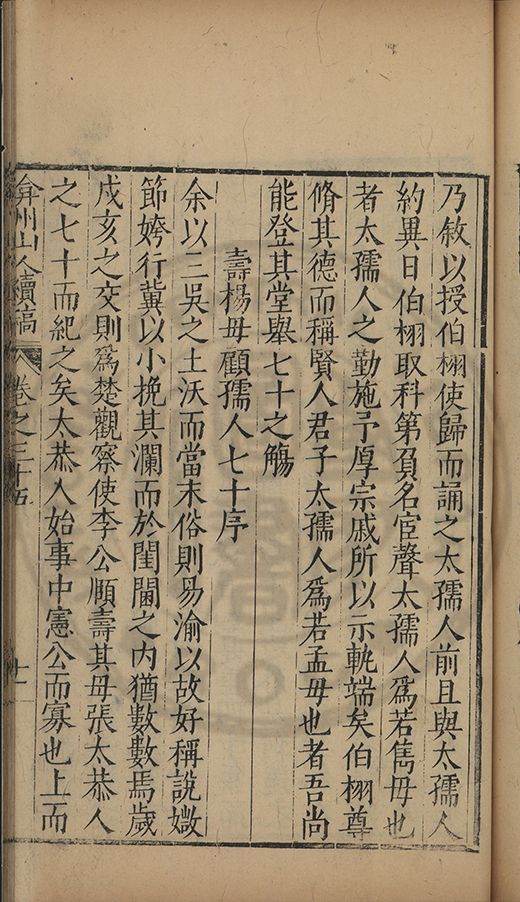 乃敘以授伯栩使歸而誦之太孺人前且與太孺人
約異日伯栩取科第負名宦聲太孺人爲若雋母也
者太孺人之勤施予厚宗戚所以示軌端矣伯栩尊
脩其德而稱賢人君子太孺人爲若孟母也者吾尚
能登其堂舉七十之觴
壽楊母顧孺人七十序
余以三吳之土沃而當末俗則易渝以故好稱說媺
節姱行冀以小挽其瀾而於閨閫之内猶數數焉歲
戌亥之交則爲楚觀察使李公順壽其母張太恭人
之七十而紀之矣太恭人始事中憲公而寡也上而
弇州山人續稿 卷之三十五 十一